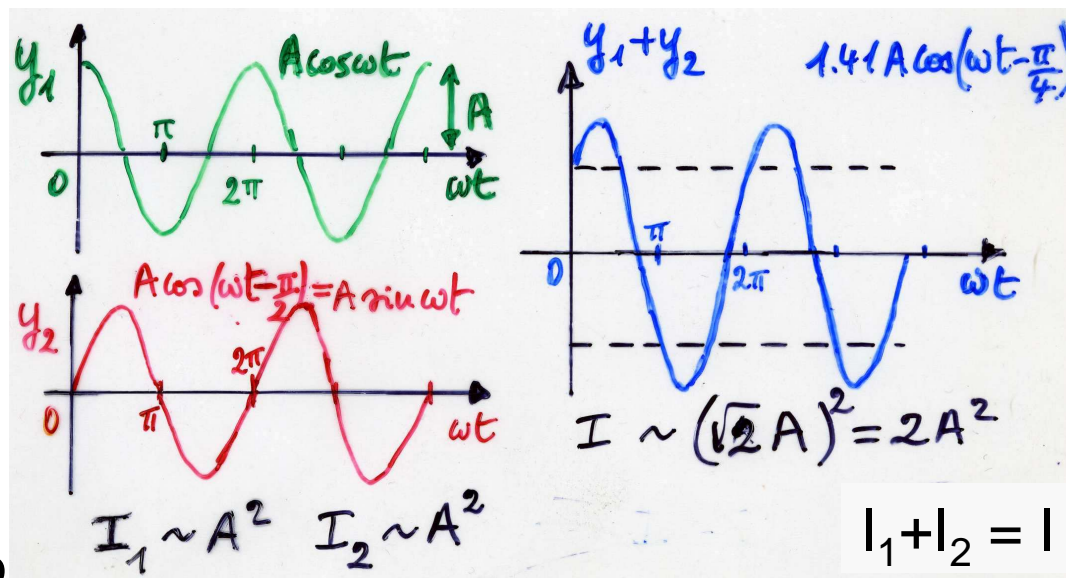 y₁
A cos ωt
A
π
2π
0
ωt
A cos (ωt - π/2) = A sin ωt
y₂
2π
π
0
ωt
I₁ ~ A² I₂ ~ A²
y₁ + y₂
1.41 A cos (ωt - π/4)
π
2π
0
ωt
I ~ (√2 A)² = 2A²
I₁+I₂ = I